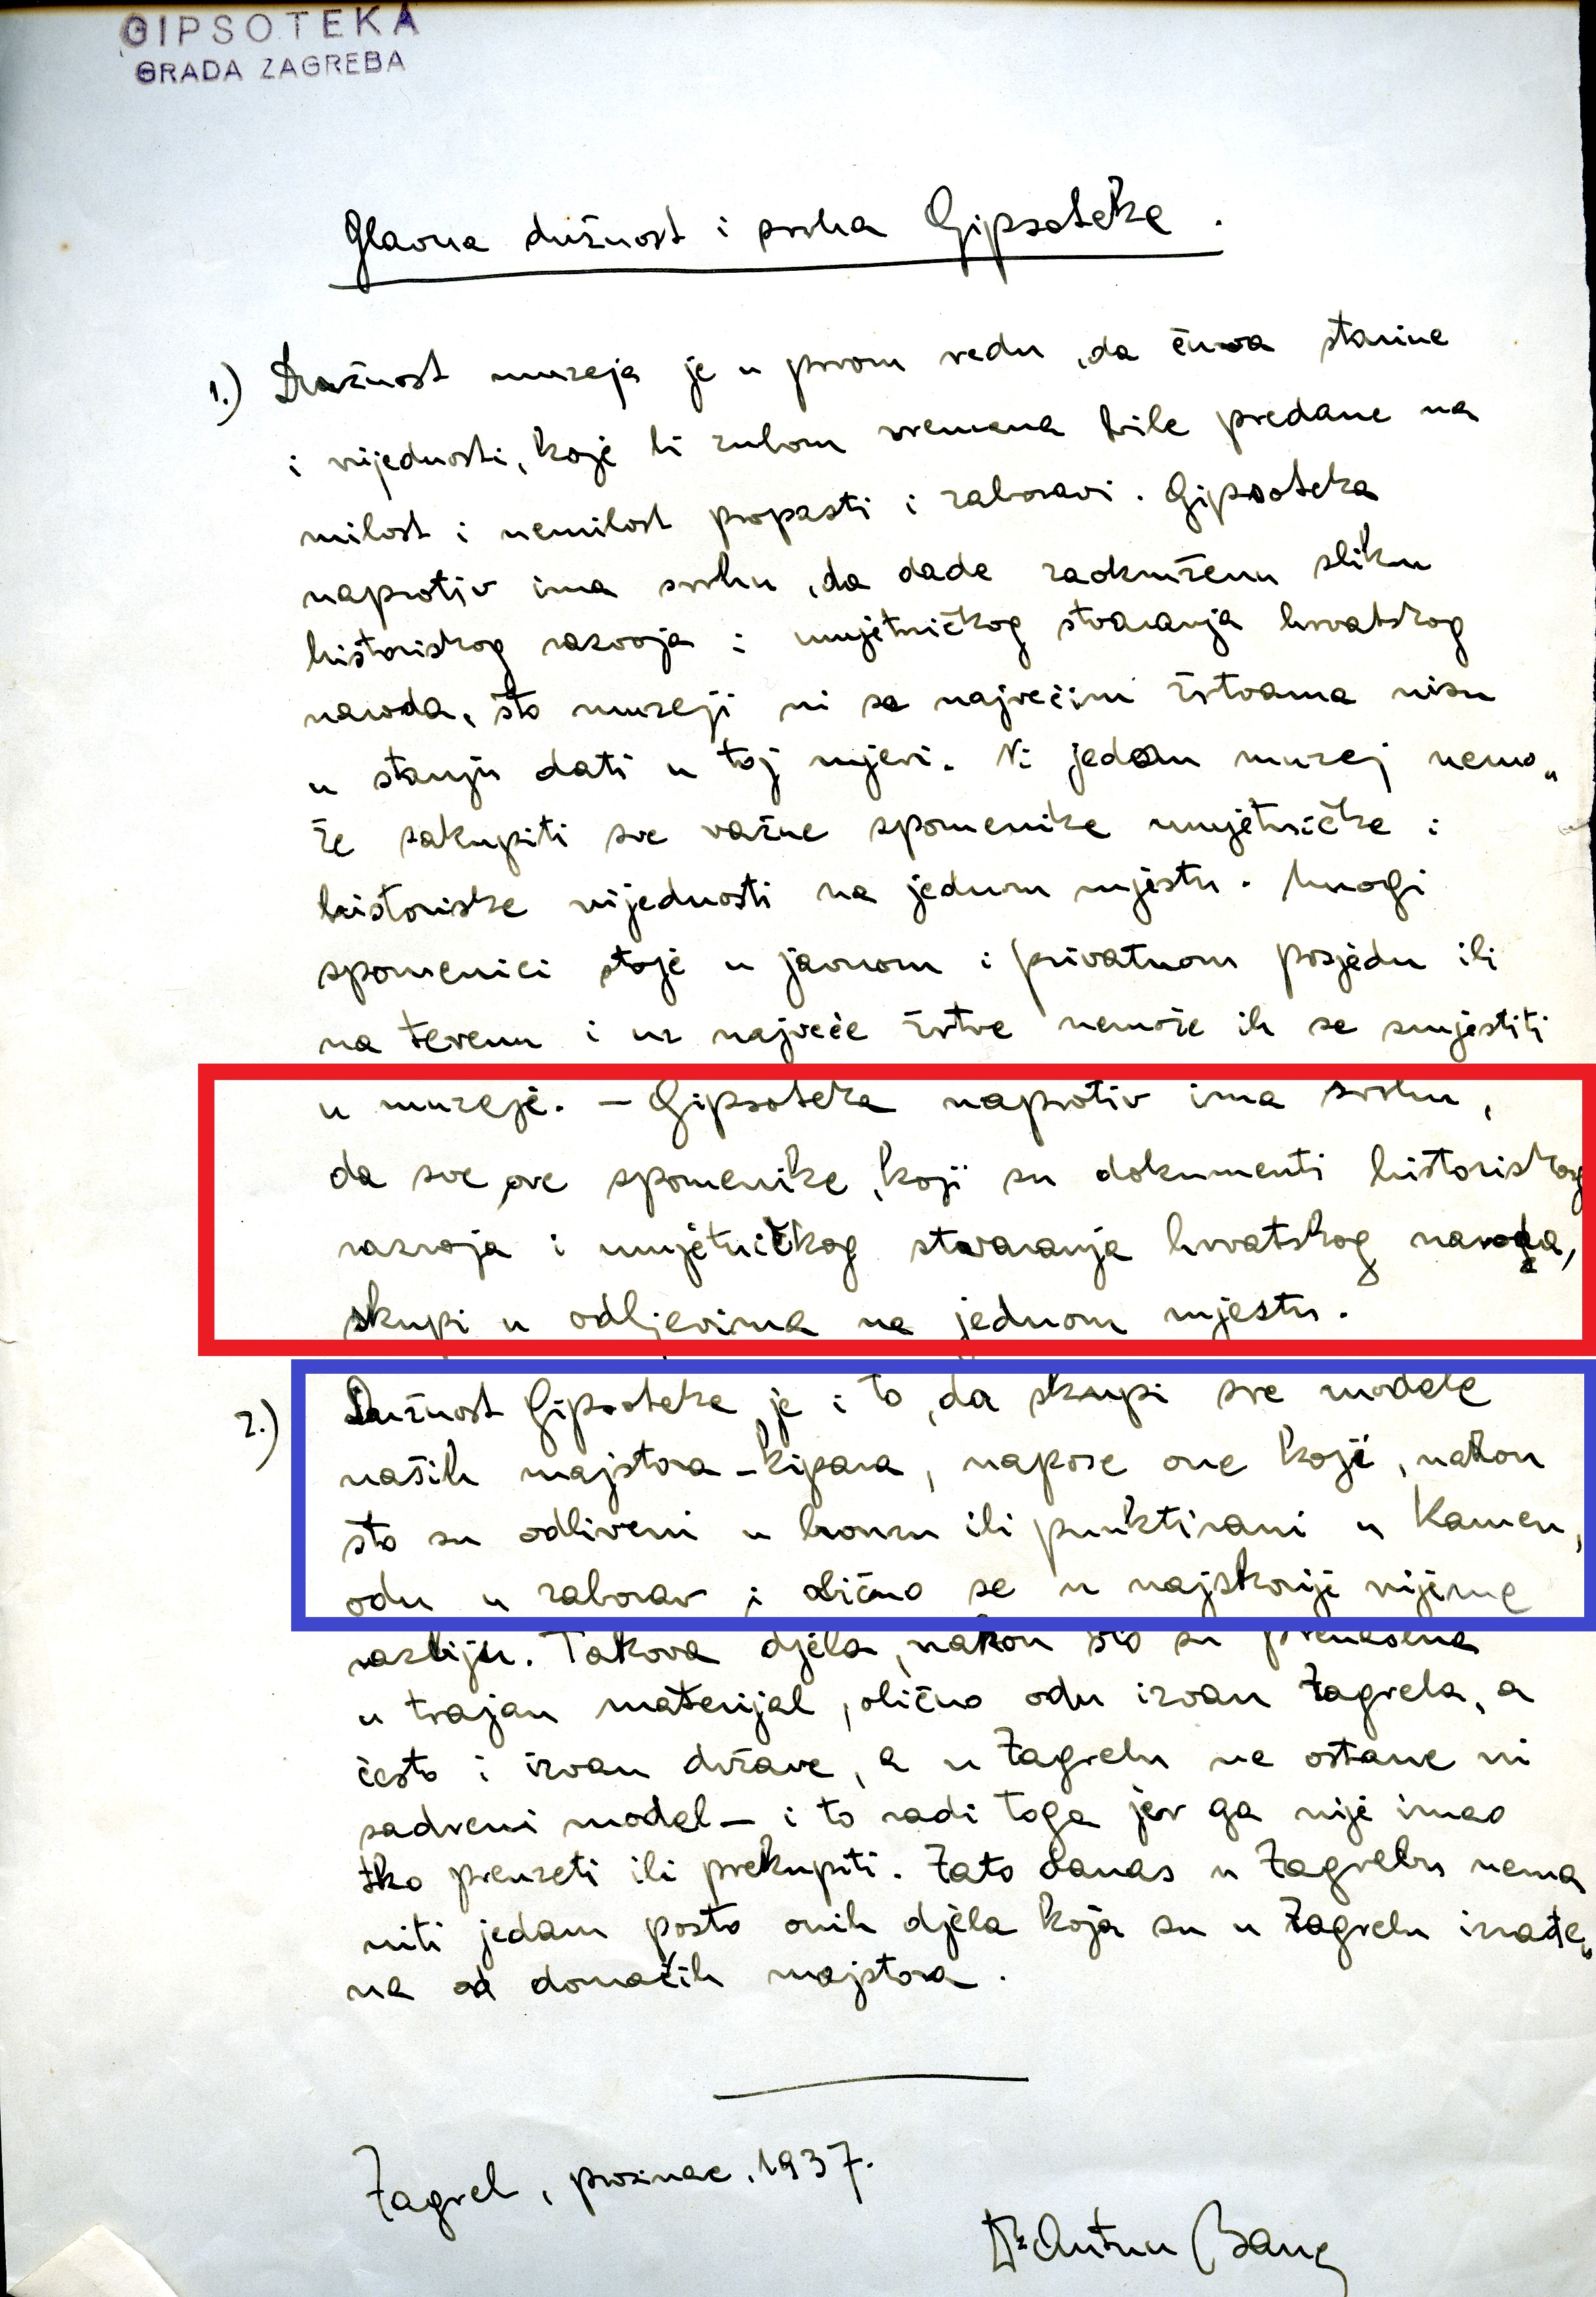 GIPSOTEKA
GRADA ZAGREBA
Glavna dužnost i svrha Gipsoteke.
1.) Dužnost muzeja je u prvom redu, da čuva starine
i vrijednosti, koje bi zubom vremena bile predane na
milost i nemilost propasti i zaboravi. Gipsoteka
naprotiv ima svrhu, da dade zaokruženu sliku
historiskog razvoja i umjetničkog stvaranja hrvatskog
naroda, što muzeji ni sa najvećim žrtvama nisu
u stanju dati u toj mjeri. Ni jedan muzej nemo„
že sakupiti sve važne spomenike umjetničke i
historiske vrijednosti na jednom mjestu. Mnogi
spomenici stoje u javnom i privatnom posjedu ili
na terenu i uz najveće žrtve nemože ih se smjestiti
u muzeje. — Gipsoteka naprotiv ima svrhu,
da sve ove spomenike, koji su dokumenti historiskog
razvoja i umjetničkog stvaranja hrvatskog naroda,
skupi u odljevima na jednom mjestu.
2.) Dužnost Gipsoteke je i to, da skupi sve modele
naših majstora-kipara, napose one koji, nakon
što su odliveni u bronzu ili punktirani u kamen,
odu u zaborav i obično se u najskorije vrijeme
razbiju. Takova djela, nakon što su prenesena
u trajan materijal, obično odu izvan Zagreba, a
često i izvan države, a u Zagrebu ne ostane ni
sadreni model — i to radi toga jer ga nije imao
tko preuzeti ili prekupiti. Zato danas u Zagrebu nema
niti jedam posto onih djela koja su u Zagrebu izrađe„
na od domaćih majstora.
Zagreb, prosinac, 1937.
Dr Antun Bauer